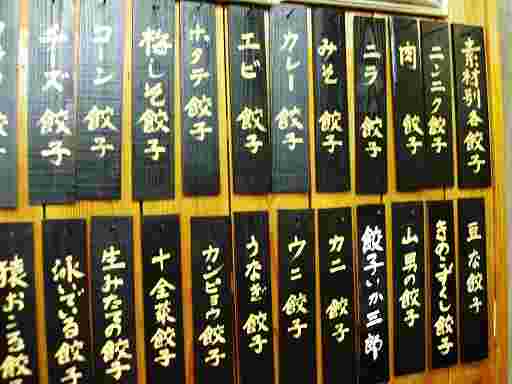 素材別各餃子
ニンニク餃子
肉餃子
ニラ餃子
みそ餃子
カレー餃子
エビ餃子
ホタテ餃子
梅しそ餃子
コーン餃子
チーズ餃子
豆な餃子
きのこずくし餃子
山男の餃子
餃子いか三郎
カニ餃子
ウニ餃子
うなぎ餃子
カンピョウ餃子
十全菜餃子
生みたての餃子
泳いでいる餃子
猿おこる餃子